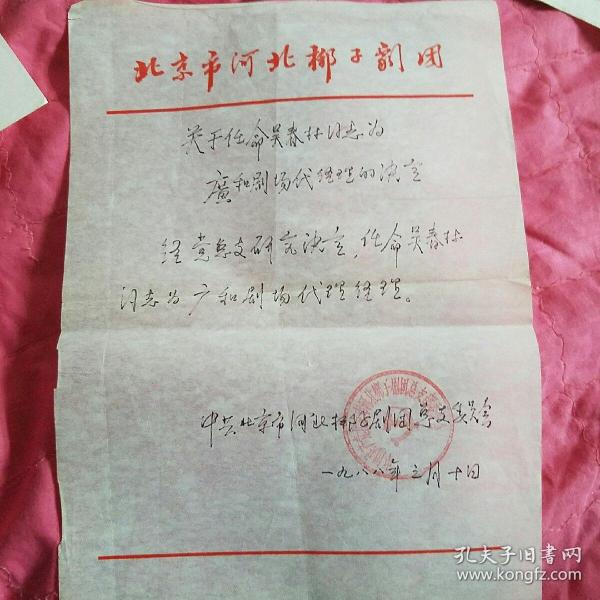 北京市河北梆子剧团
关于任命吴春林同志为
廣和剧场代经理的决定
经党总支研究决定，任命吴春林
同志为广和剧场代理经理。
中共北京市河北梆子剧团总支委员会
一九八八年三月十日
孔夫子旧书网
www.kongfz.com